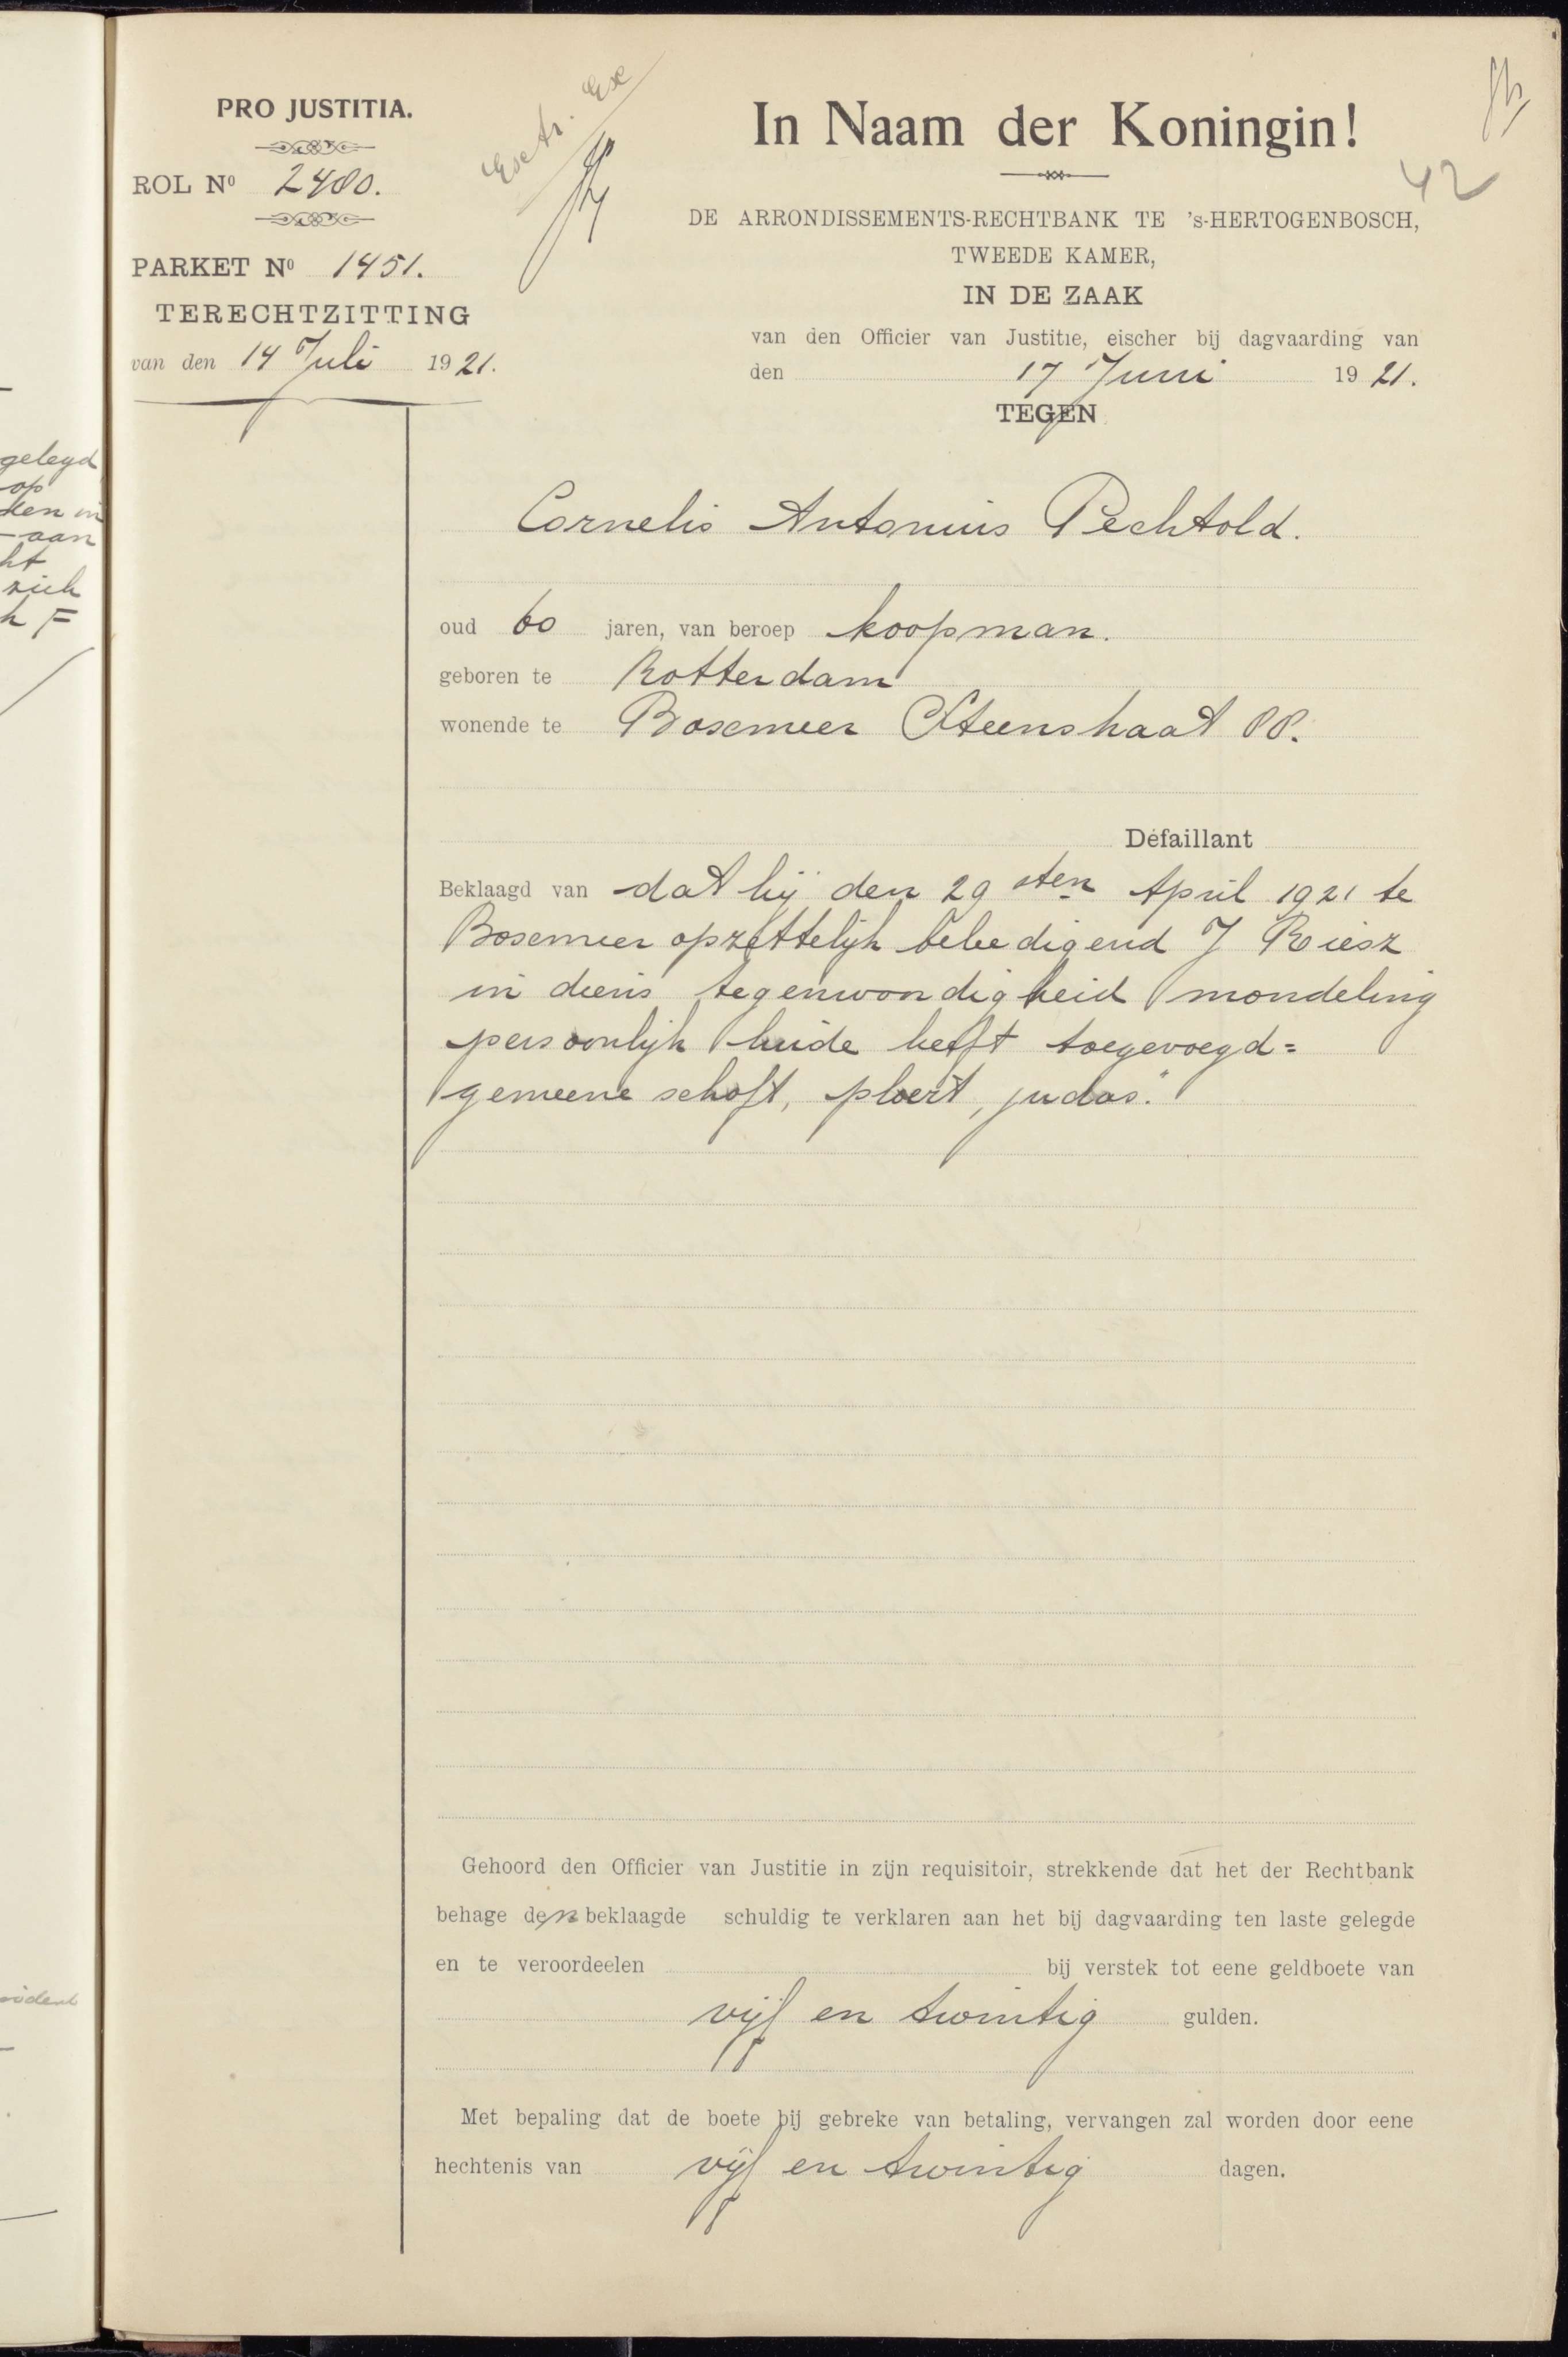 gelegd
op
ken in
- aan
ht
zich
h F
PRO JUSTITIA.
ROL No 2480.
PARKET No 1451.
TERECHTZITTING
van den 14 Juli 1921.
Extr. Ex
In Naam der Koningin!
42
DE ARRONDISSEMENTS-RECHTBANK TE 's-HERTOGENBOSCH,
TWEEDE KAMER,
IN DE ZAAK
van den Officier van Justitie, eischer bij dagvaarding van
den 17 Juni 1921.
TEGEN
Cornelis Antonius Pechtold.
oud 60 jaren, van beroep koopman.
geboren te Rotterdam
wonende te Boxmeer Steenstraat
Défaillant
Beklaagd van dat hij den 29 sten April 1921 te
Boxmeer opzettelijk beleedigend J Roiesz
in diens tegenwoordigheid mondeling
persoonlijk luide heeft toegevoegd =
gemeene schoft, ploert, judas."
Gehoord den Officier van Justitie in zijn requisitoir, strekkende dat het der Rechtbank
behage den beklaagde schuldig te verklaren aan het bij dagvaarding ten laste gelegde
en te veroordeelen bij verstek tot eene geldboete van
vijf en twintig gulden.
Met bepaling dat de boete bij gebreke van betaling, vervangen zal worden door eene
hechtenis van vijf en twintig dagen.